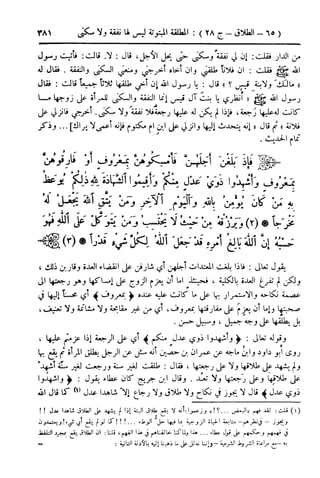 (٦٥) - الطلاق - ج ٢٨ (٠) : المطلقة المبتوتة ليس لها نفقة ولا سكنى ٣٨١
من الدار فقلت: إن لي نفقة وسكنى حتى يحل الأجل، قال: لا. قالت: فأتيت رسول
الله ﷺ فقلت: إن فلاناً طلقني وإن أخاه أخرجني ومنعني السكنى والنفقة. فقال له
«مالك ولابنة قيس؟» قال: يا رسول الله إن أخي طلقها ثلاثاً جميعاً قالت: فقال
رسول الله ﷺ «أنظري يا بنت آل قيس إنما النفقة والسكنى للمرأة على زوجها ما
كانت له عليها رجعة، فإذا لم يكن له عليها رجعة فلا نفقة ولا سكنى. أخرجي فانزلي على
فلانة» ثم قال «إنه يتحدث إليها وانزلي على ابن أم مكتوم فإنه أعمى لا يراك]... وذكر
تمام الحديث.
فَإِذَا بَلَغْنَ أَجَلَهُنَّ فَأَمْسِكُوهُنَّ بِمَعْرُوفٍ أَوْ فَارِقُوهُنَّ
بِمَعْرُوفٍ وَأَشْهِدُوا ذَوَيْ عَدْلٍ مِنْكُمْ وَأَقِيمُوا الشَّهَادَةَ لِلَّهِ ذَلِكُمْ يُوعَظُ
بِهِ مَنْ كَانَ يُؤْمِنُ بِاللَّهِ وَالْيَوْمِ الْآخِرِ وَمَنْ يَتَّقِ اللَّهَ يَجْعَلْ لَهُ
مَخْرَجًا * (٢) وَيَرْزُقْهُ مِنْ حَيْثُ لَا يَحْتَسِبُ وَمَنْ يَتَوَكَّلْ عَلَى اللَّهِ فَهُوَ
حَسْبُهُ إِنَّ اللَّهَ بَالِغُ أَمْرِهِ قَدْ جَعَلَ اللَّهُ لِكُلِّ شَيْءٍ قَدْرًا * (٣)
يقول تعالى: فإذا بلغت المعتدات أجلهن أي شارفن على انقضاء العدة وقاربن ذلك،
ولكن لم تفرغ العدة بالكلية، فحينئذ اما أن يعزم الزوج على إمساكها وهو رجعتها الى
عصمة نكاحه والاستمرار بها على ما كانت عليه عنده ﴿بمعروف﴾ أي محسناً إليها في
صحبتها وإما أن يعزم على مفارقتها بمعروف، أي من غير مقابحة ولا مشاتمة ولا تعنيف،
بل يطلقها على وجه جميل، وسبيل حسن.
وقوله تعالى: ﴿وأشهدوا ذوي عدل منكم﴾ أي على الرجعة إذا عزمتم عليها،
روى أبو داود وابن ماجه عن عمران بن حصين أنه سئل عن الرجل يطلق المرأة ثم يقع بها
ولم يشهد على طلاقها ولا على رجعتها، فقال: طلقت لغير سنة ورجعت لغير سنة أشهد
على طلاقها وعلى رجعتها ولا تعد. وقال ابن جريج كان عطاء يقول: ﴿وأشهدوا
ذوي عدل﴾ قال لا يجوز في نكاح ولا طلاق ولا رجاع إلا شاهدا عدل (١) كما قال الله
(١) قلت: لقد فهم بالبعض ...؟!! وزعموا: أنه لا يقع طلاق البتة إذا لم يشهد على الطلاق شاهدا عدل !!